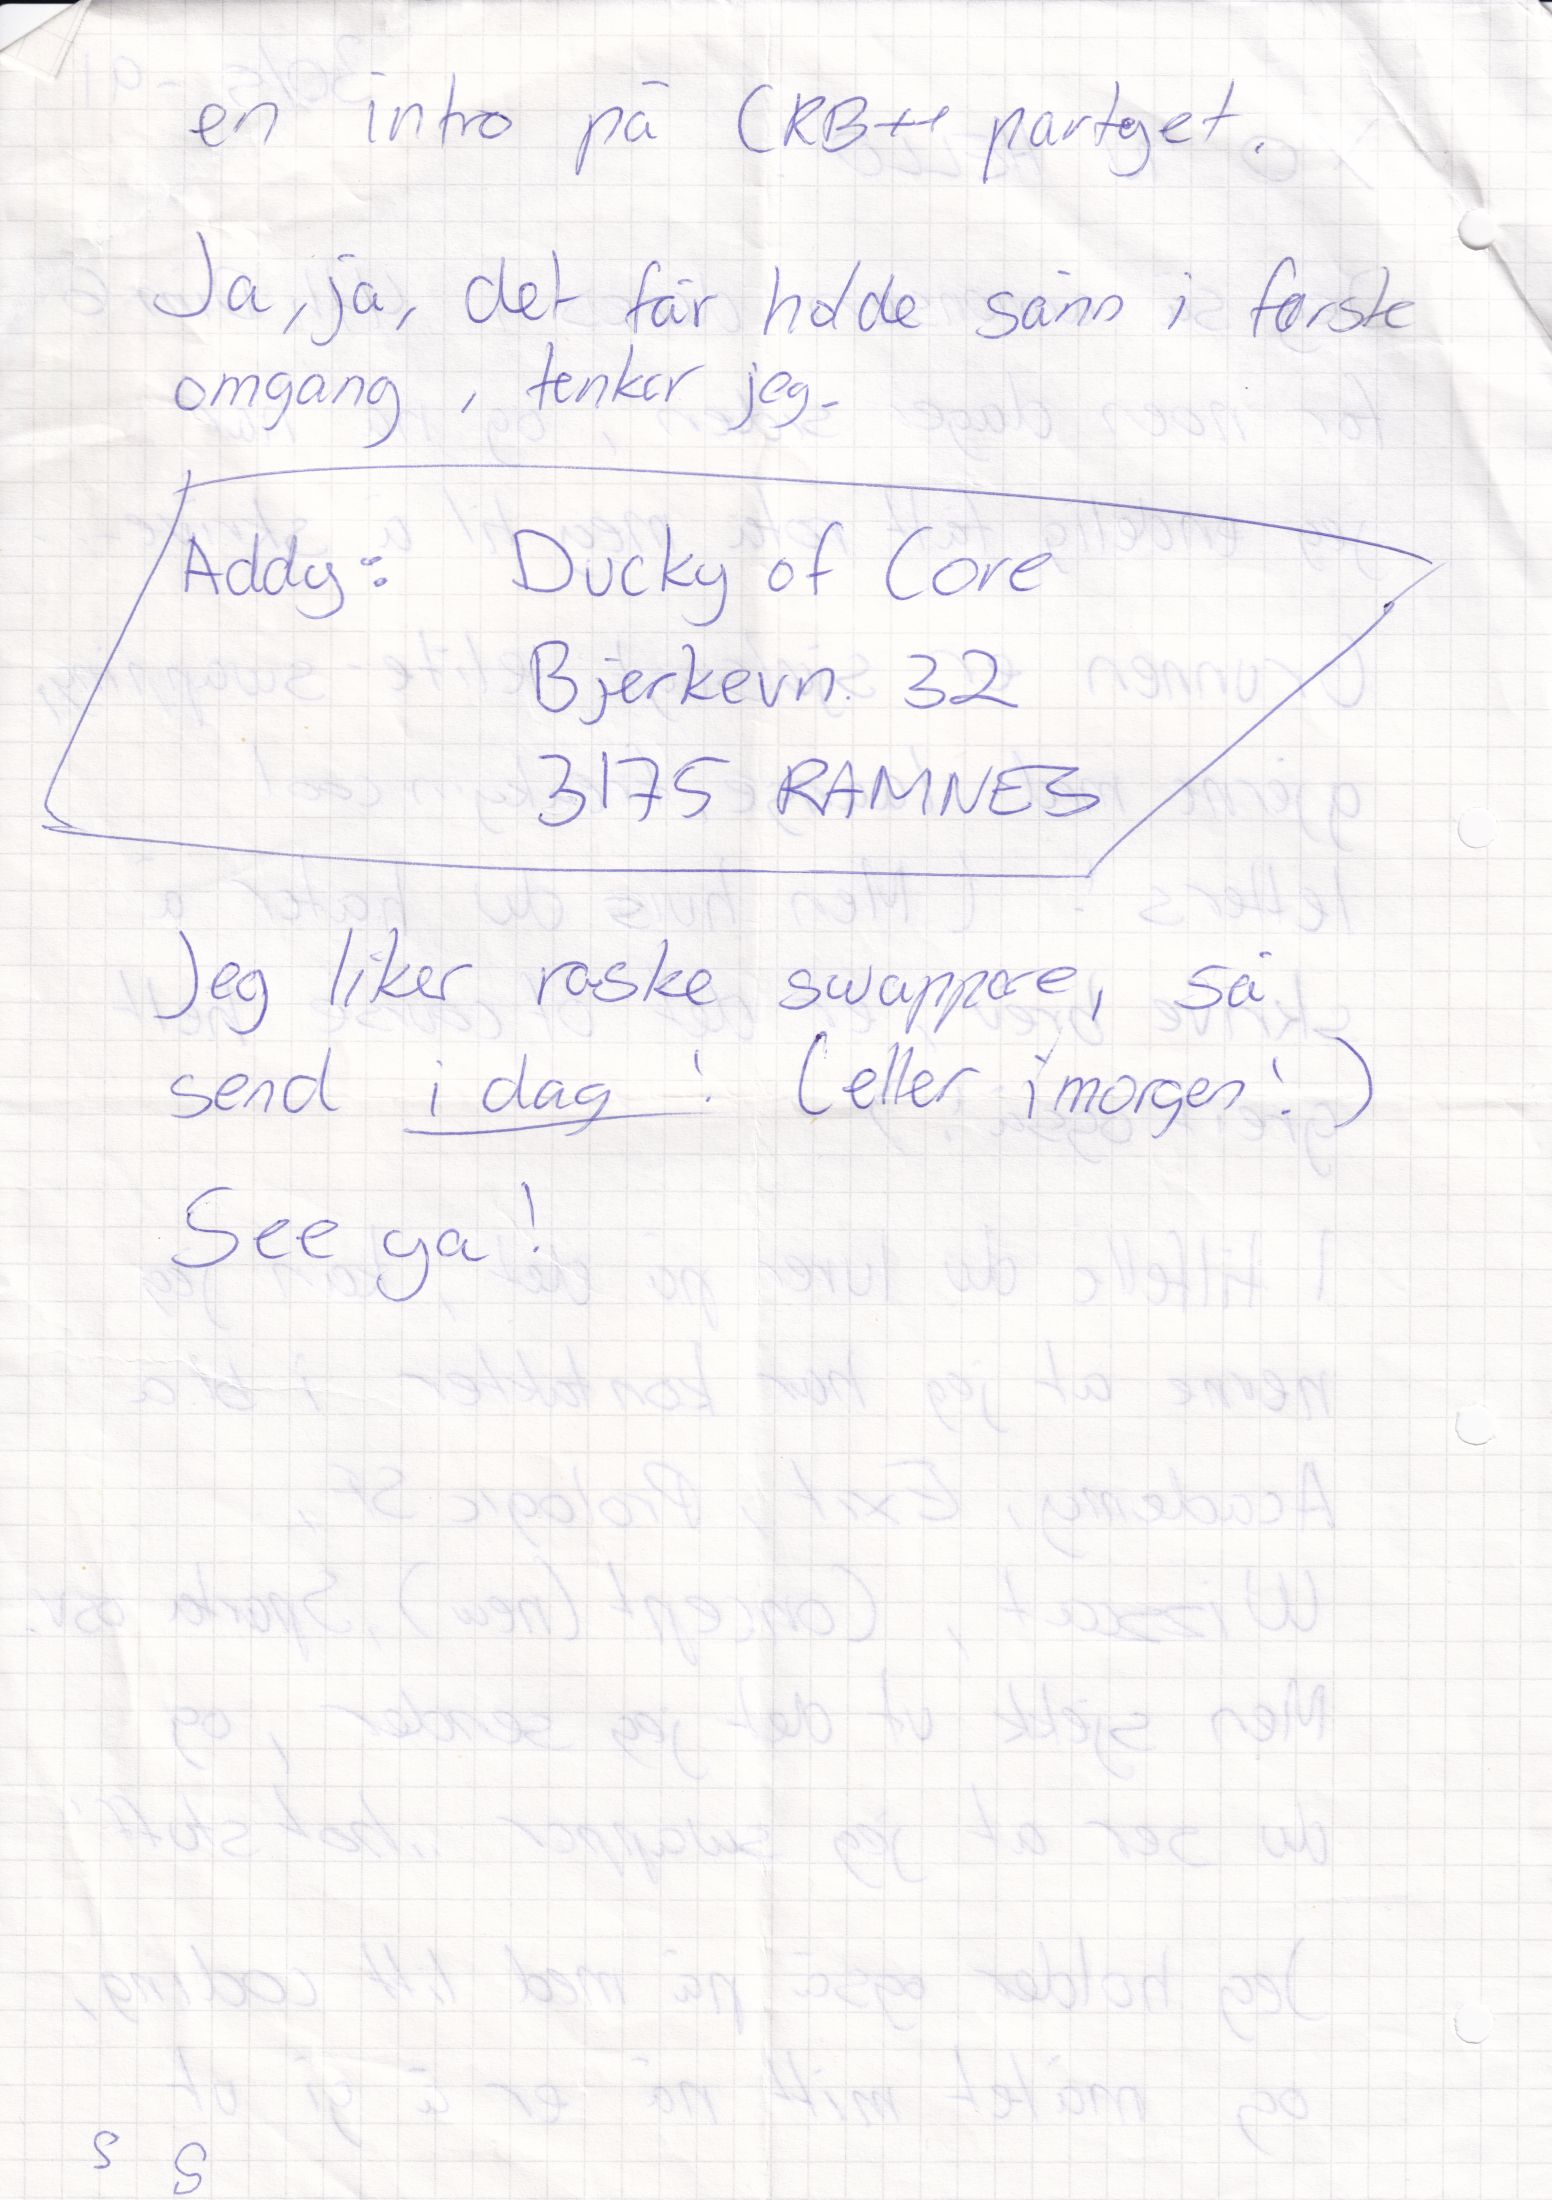 en intro på CRB++ partyet.
Ja, ja, det får holde sånn i første
omgang, tenker jeg.
Addy: Ducky of Core
Bjerkevn. 32
3175 RAMNES
Jeg liker raske swappere, så
send i dag! (eller i morgen!)
See ya!